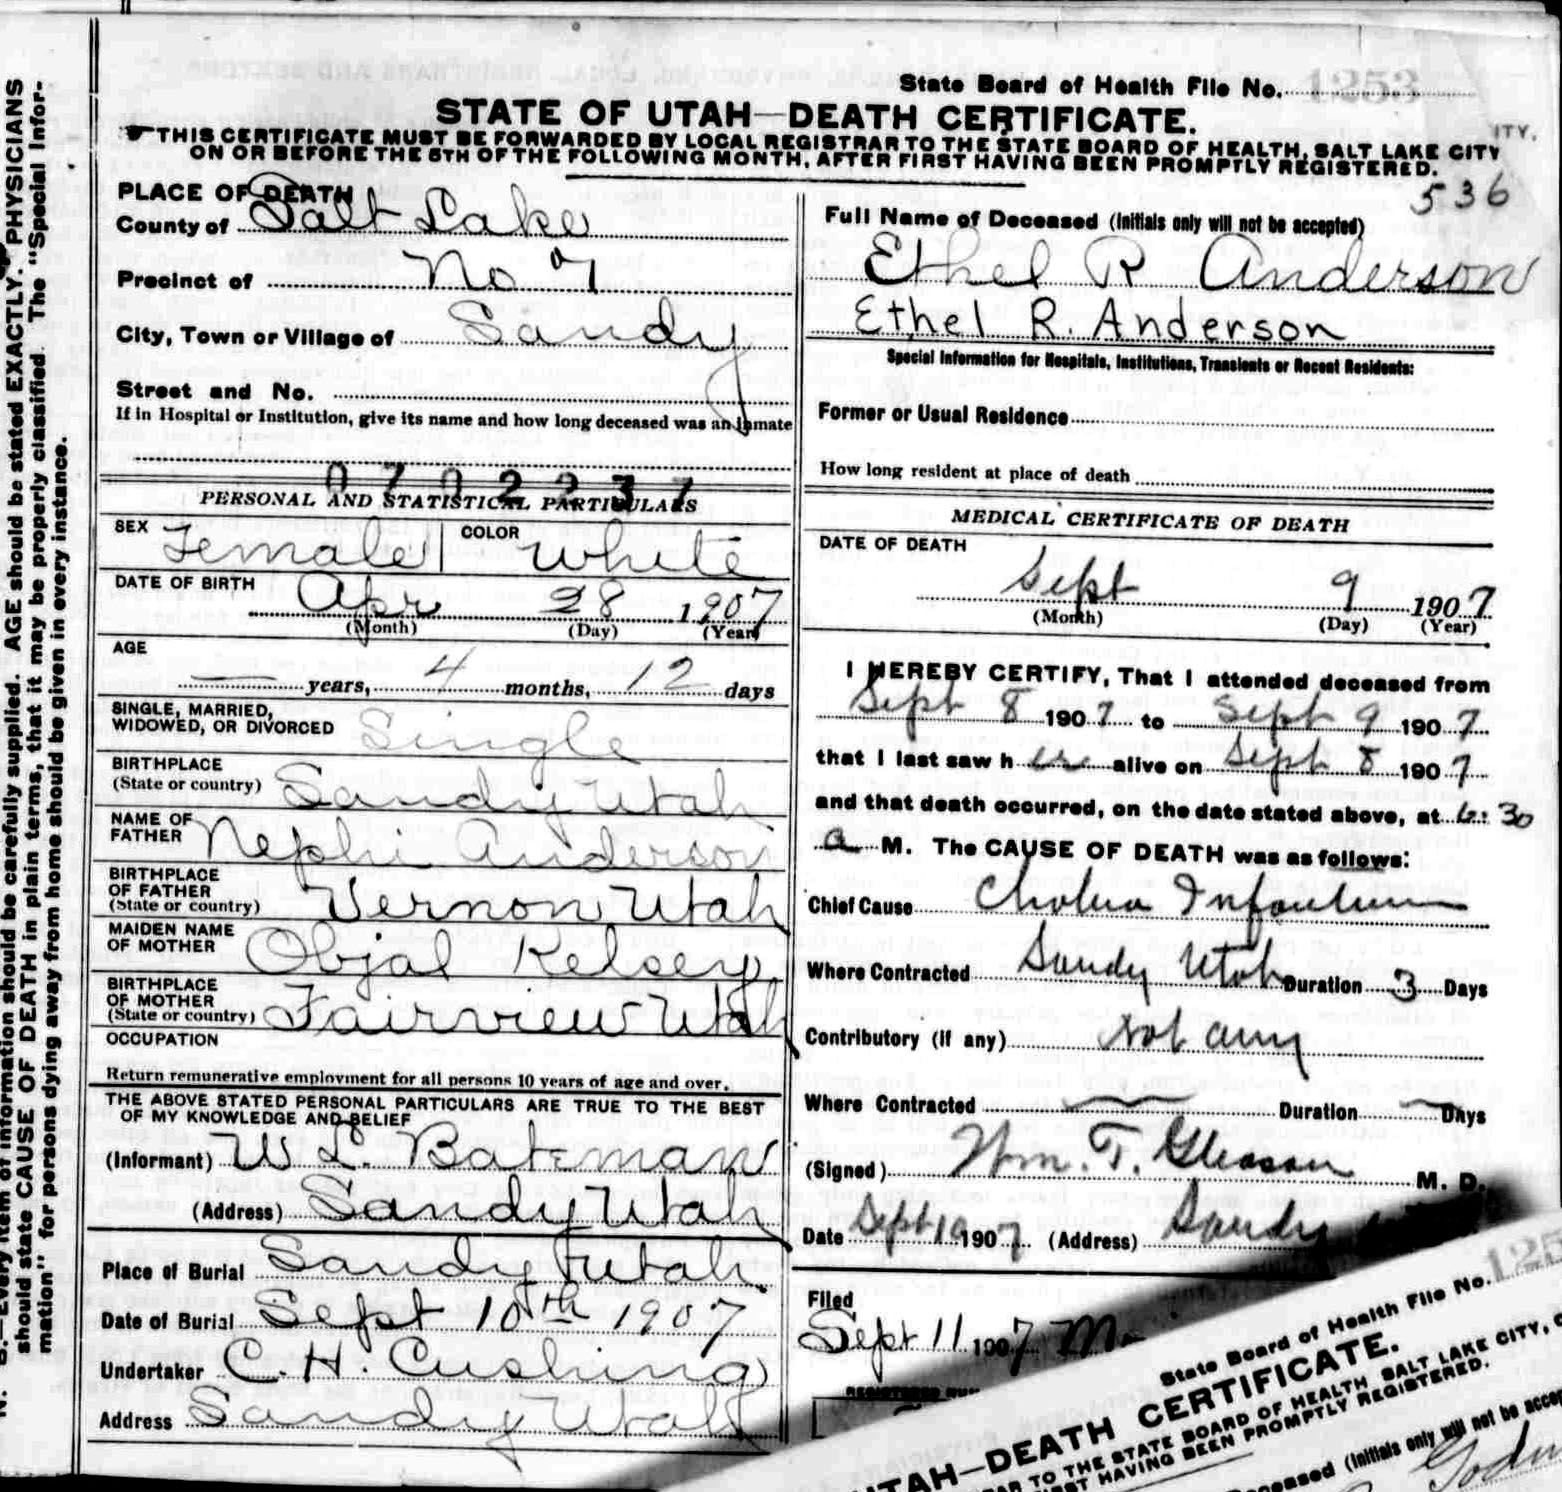 State Board of Health File No. 1253
STATE OF UTAH—DEATH CERTIFICATE.
THIS CERTIFICATE MUST BE FORWARDED BY LOCAL REGISTRAR TO THE STATE BOARD OF HEALTH, SALT LAKE CITY
ITY,
ON OR BEFORE THE 5TH OF THE FOLLOWING MONTH, AFTER FIRST HAVING BEEN PROMPTLY REGISTERED.
536
PLACE OF DEATH
County of Salt Lake
Precinct of No 7
City, Town or Village of Sandy
Street and No.
If in Hospital or Institution, give its name and how long deceased was an inmate
PERSONAL AND STATISTICAL PARTICULARS
SEX Female COLOR White
DATE OF BIRTH
Apr 28 1907
(Month) (Day) (Year)
AGE
— years, 4 months, 12 days
SINGLE, MARRIED,
WIDOWED, OR DIVORCED Single
BIRTHPLACE
(State or country) Sandy Utah
NAME OF
FATHER Nephi Anderson
BIRTHPLACE
OF FATHER
(State or country) Vernon Utah
MAIDEN NAME
OF MOTHER Objal Kelsey
BIRTHPLACE
OF MOTHER
(State or country) Fairview Utah
OCCUPATION
Return remunerative employment for all persons 10 years of age and over.
THE ABOVE STATED PERSONAL PARTICULARS ARE TRUE TO THE BEST
OF MY KNOWLEDGE AND BELIEF
(Informant) W L. Bateman
(Address) Sandy Utah
Place of Burial Sandy Utah
Date of Burial Sept 10th 1907
Undertaker C. H. Cushing
Address Sandy Utah
Full Name of Deceased (Initials only will not be accepted)
Ethel R Anderson
Ethel R. Anderson
Special Information for Hospitals, Institutions, Transients or Recent Residents:
Former or Usual Residence
How long resident at place of death
MEDICAL CERTIFICATE OF DEATH
DATE OF DEATH
Sept 9 1907
(Month) (Day) (Year)
I HEREBY CERTIFY, That I attended deceased from
Sept 8 1907 to Sept 9 1907
that I last saw her alive on Sept 8 1907
and that death occurred, on the date stated above, at 6:30
a M. The CAUSE OF DEATH was as follows:
Chief Cause Cholera Infantum
Where Contracted Sandy Utah Duration 3 Days
Contributory (if any) Not any
Where Contracted — Duration — Days
(Signed) Wm. T. Gleason M. D.
Date Sept 1907 (Address) Sandy
Filed
Sept 11 1907
N. B.—Every item of information should be carefully supplied. AGE should be stated EXACTLY. PHYSICIANS
should state CAUSE OF DEATH in plain terms, that it may be properly classified. The "Special Infor-
mation" for persons dying away from home should be given in every instance.
State Board of Health File No. 125
UTAH—DEATH CERTIFICATE.
AR TO THE STATE BOARD OF HEALTH SALT LAKE CITY,
FIRST HAVING BEEN PROMPTLY REGISTERED.
Deceased (Initials only will not be accep